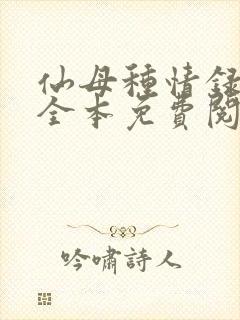 仙母種情録
全本免費閱
吟嘯詩人